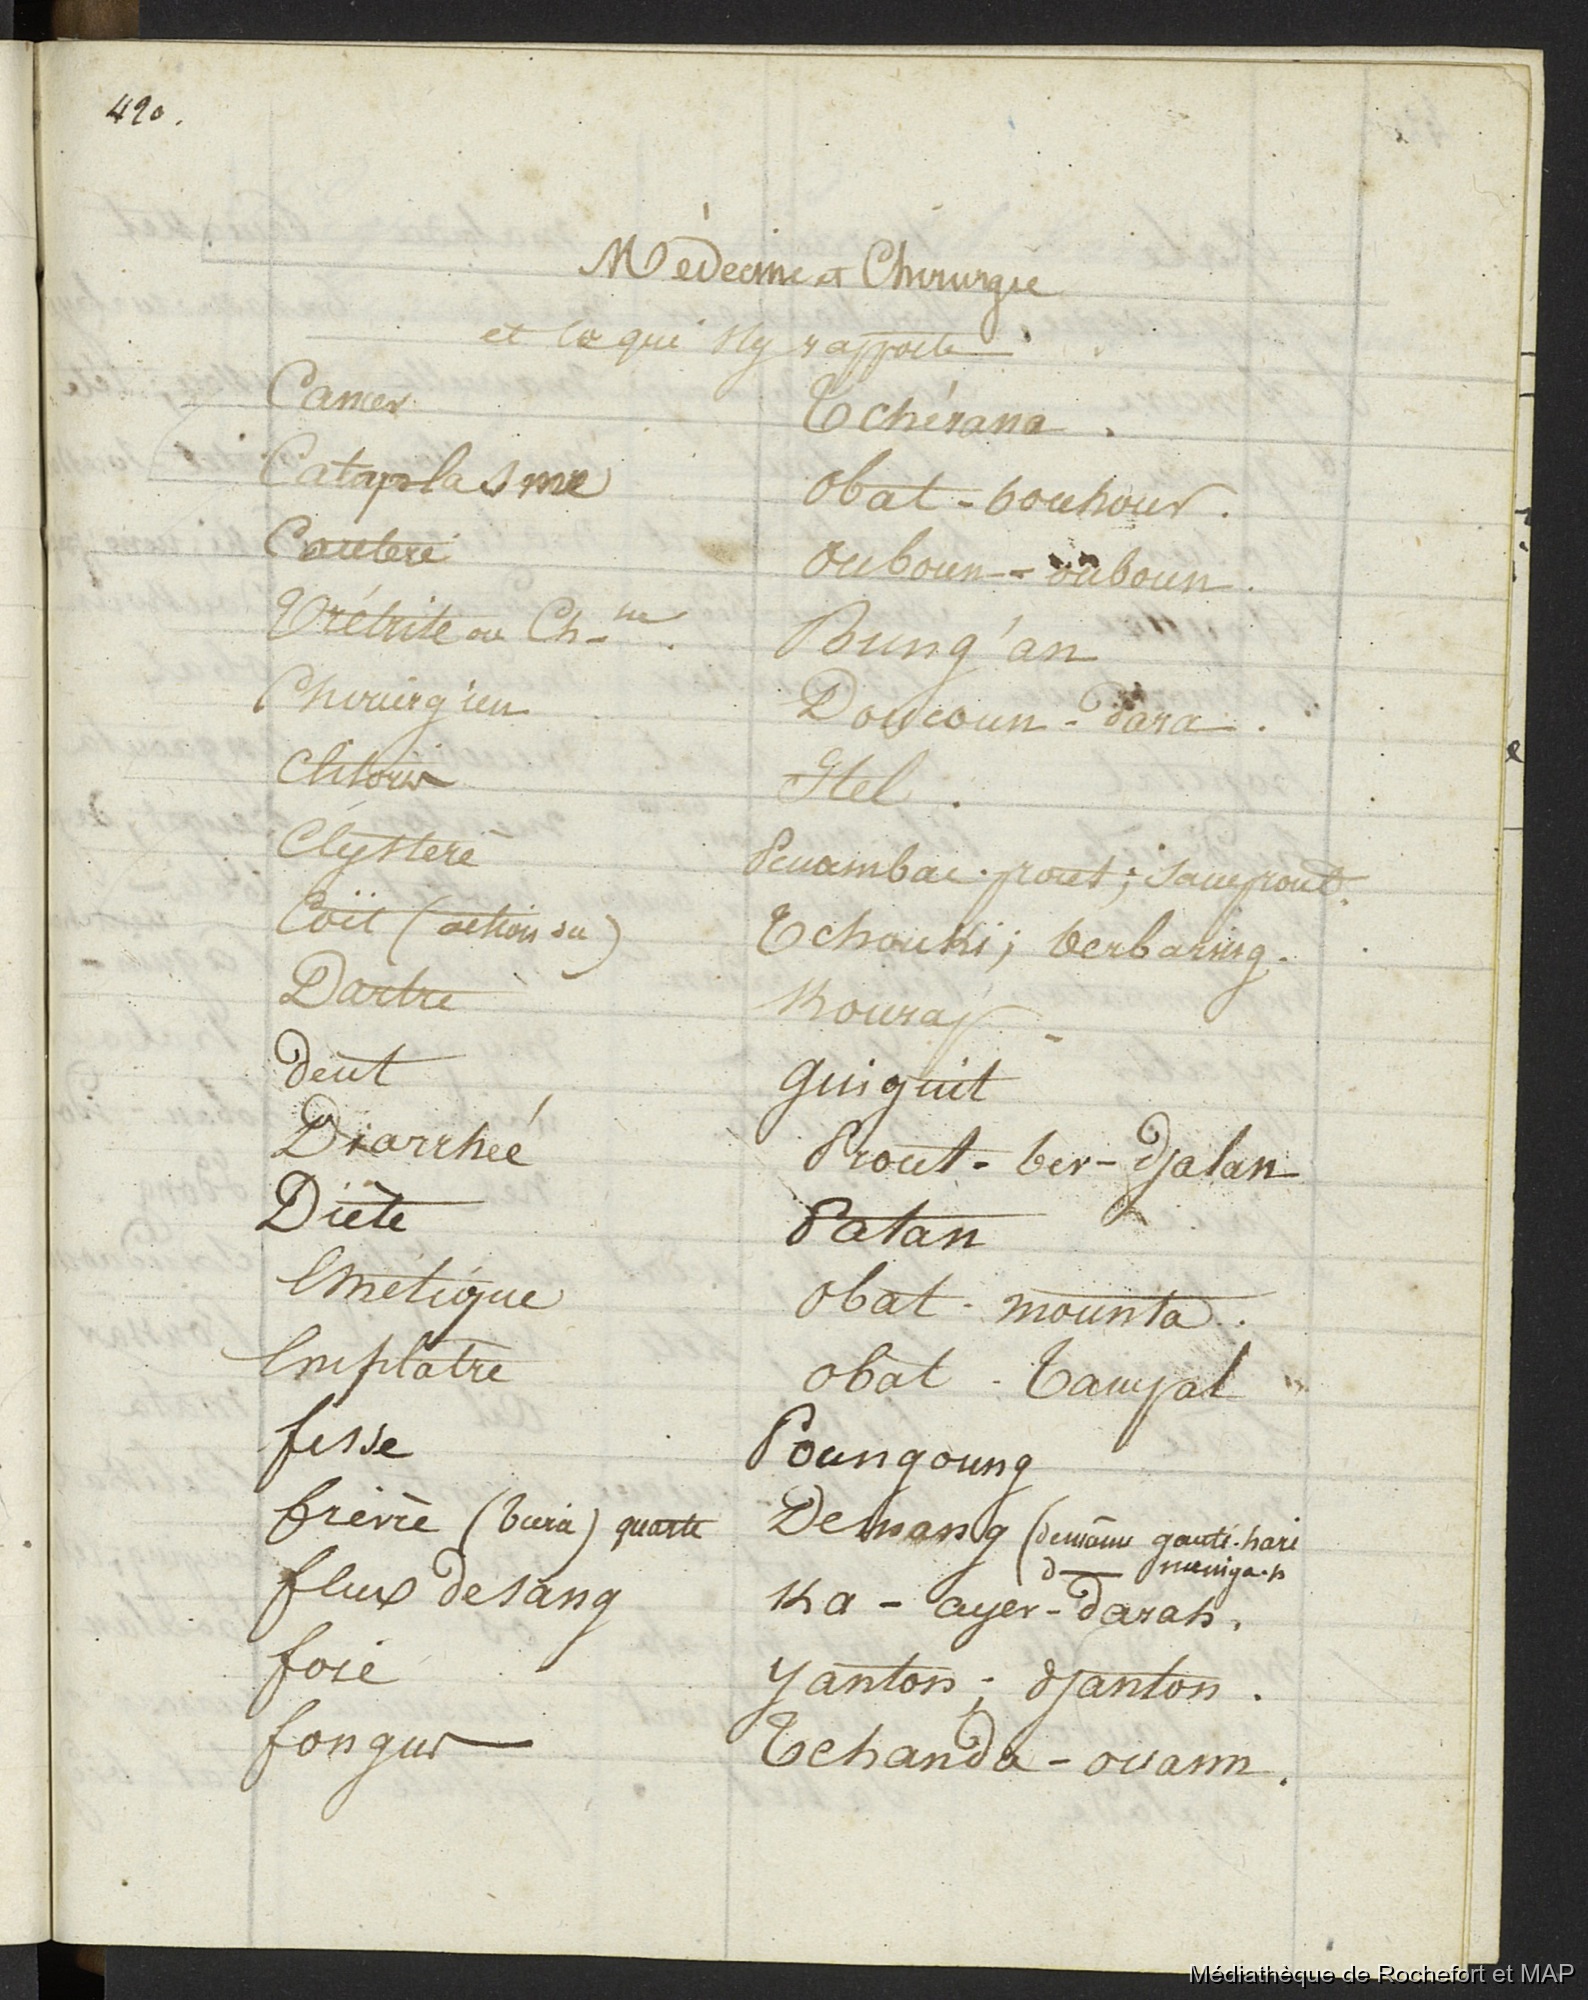 420.
Médecine et Chirurgie
et ce qui s'y rapporte
Cancer Tchérana.
Cataplasme obat-bouhour.
Cautere ouboun-ouboun.
Urétrite ou Ch-ne. Bung'an
Chirurgien Doucoun-dara.
Clitoris Itel.
Clystere pout;
Coït (action du) Tchouki; berbaring.
Dartre Kourap
dent guiguit
Diarrheé Prout-ber-djalan
Diète Patan
Emétique obat-mounta.
Emplatre obat-Tampal
fesse Poungoung
fievre quarte Demang (demâme hari
flux de sang Ka-ayer-darah.
foie yanton; djanton.
fongus Tchanda-ouann.
Médiathèque de Rochefort et MAP